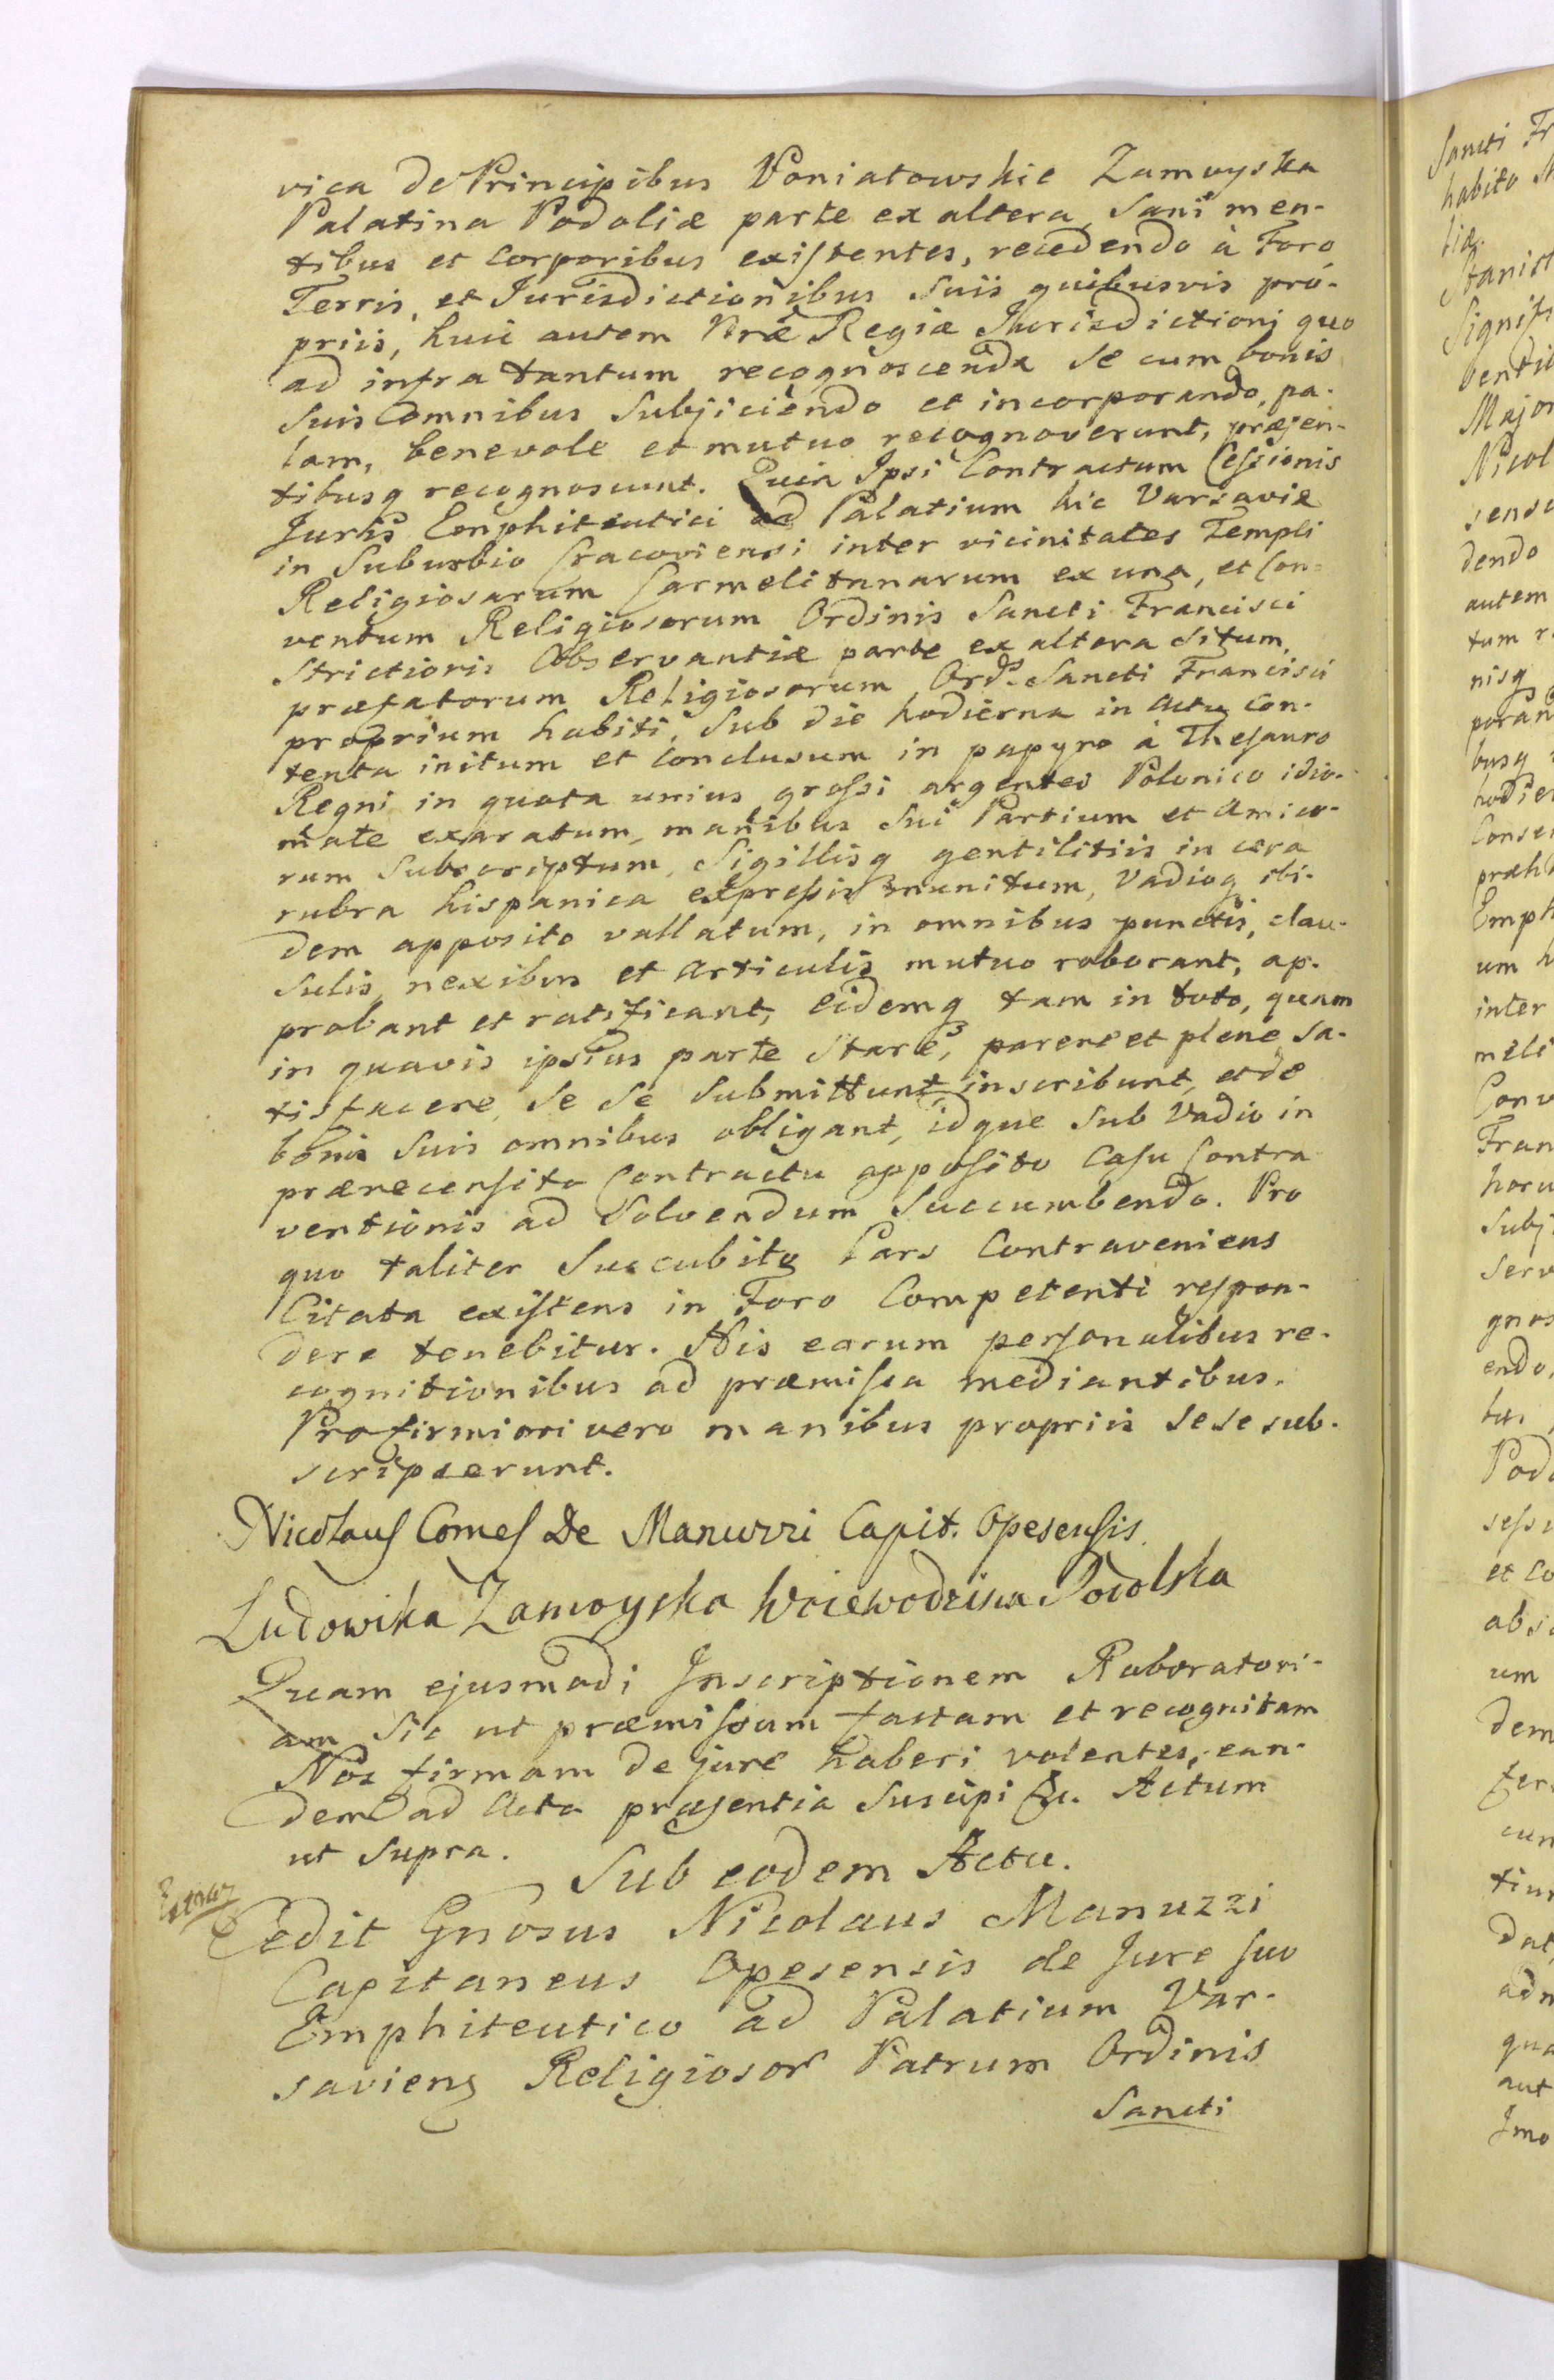 vica de Principibus Poniatowskie Zamoyska
Palatina Podoliæ parte ex altera, Sani men-
tibus et Corporibus existentes, recedendo à Foro
Terris, et Jurisdictionibus Suis quibusvis pro-
priis, huic autem Nræ Regiæ Jurisdictioni quo
ad infra tantum recognoscenda Se cum bonis
Suis omnibus Subjiciendo et incorporando, pa-
lam, benevole et mutuo recognoverunt, præsen-
tibusq recognoscunt. Quia Ipsi Contractum Cessionis
Juris Emphiteutici ad Palatium hic Varsaviæ
in Suburbio Cracoviensi inter vicinitates Templi
Religiosarum Carmelitanarum ex una, et Con-
ventum Religiosorum Ordinis Sancti Francisci
Strictioris Observantiæ parte ex altera Situm,
præfatorum Religiosorum Ords Sancti Francisci
proprium habiti, Sub die hodierna in Actu Con-
tenta initum et Conclusum in papyro à Thesauro
Regni in quota unius grossi argentei Polonico idio-
mate exaratum, manibus Sui Partium et Amico-
rum Subscriptum, Sigillisq gentilitiis in cera
rubra hispanica expressis munitum, Vadioq ibi-
dem apposito vallatum, in omnibus punctis, clau-
sulis, nexibus et Articulis mutuo roborant, ap-
probant et ratificant, eidemq tam in toto, quam
in quavis ipsius parte Stare, parere et plene Sa-
tisfacere Se Se Submittunt, inscribunt, et de
bonis Suis omnibus obligant, idque Sub Vadio in
prærecensito Contractu apposito Casu Contra
ventionis ad Solvendum Succumbendo. Pro
quo taliter Succubito Pars Contraveniens
Citata existens in Foro Competenti respon-
dere tenebitur. His earum personalibus re-
cognitionibus ad præmissa mediantibus.
Pro firmiori vero manibus propriis Se se sub-
scripserunt.
Nicolaus Comes De Manuzzi Capit. Opesensis
Ludowika Zamoyska Woiewodzina Podolska
Quam ejusmodi Inscriptionem Roboratori-
am Sic ut præmissum factam et recognitam
Nos firmam de jure haberi volentes, ean-
dem ad Acta præsentia Suscipi &c. Actum
ut Supra.
Sub eodem Actu.
Cedit Gnosus Nicolaus Manuzzi
Capitaneus Opesensis de Jure Suo
Emphiteutico ad Palatium Var-
saviens Religiosor Patrum Ordinis
Sancti